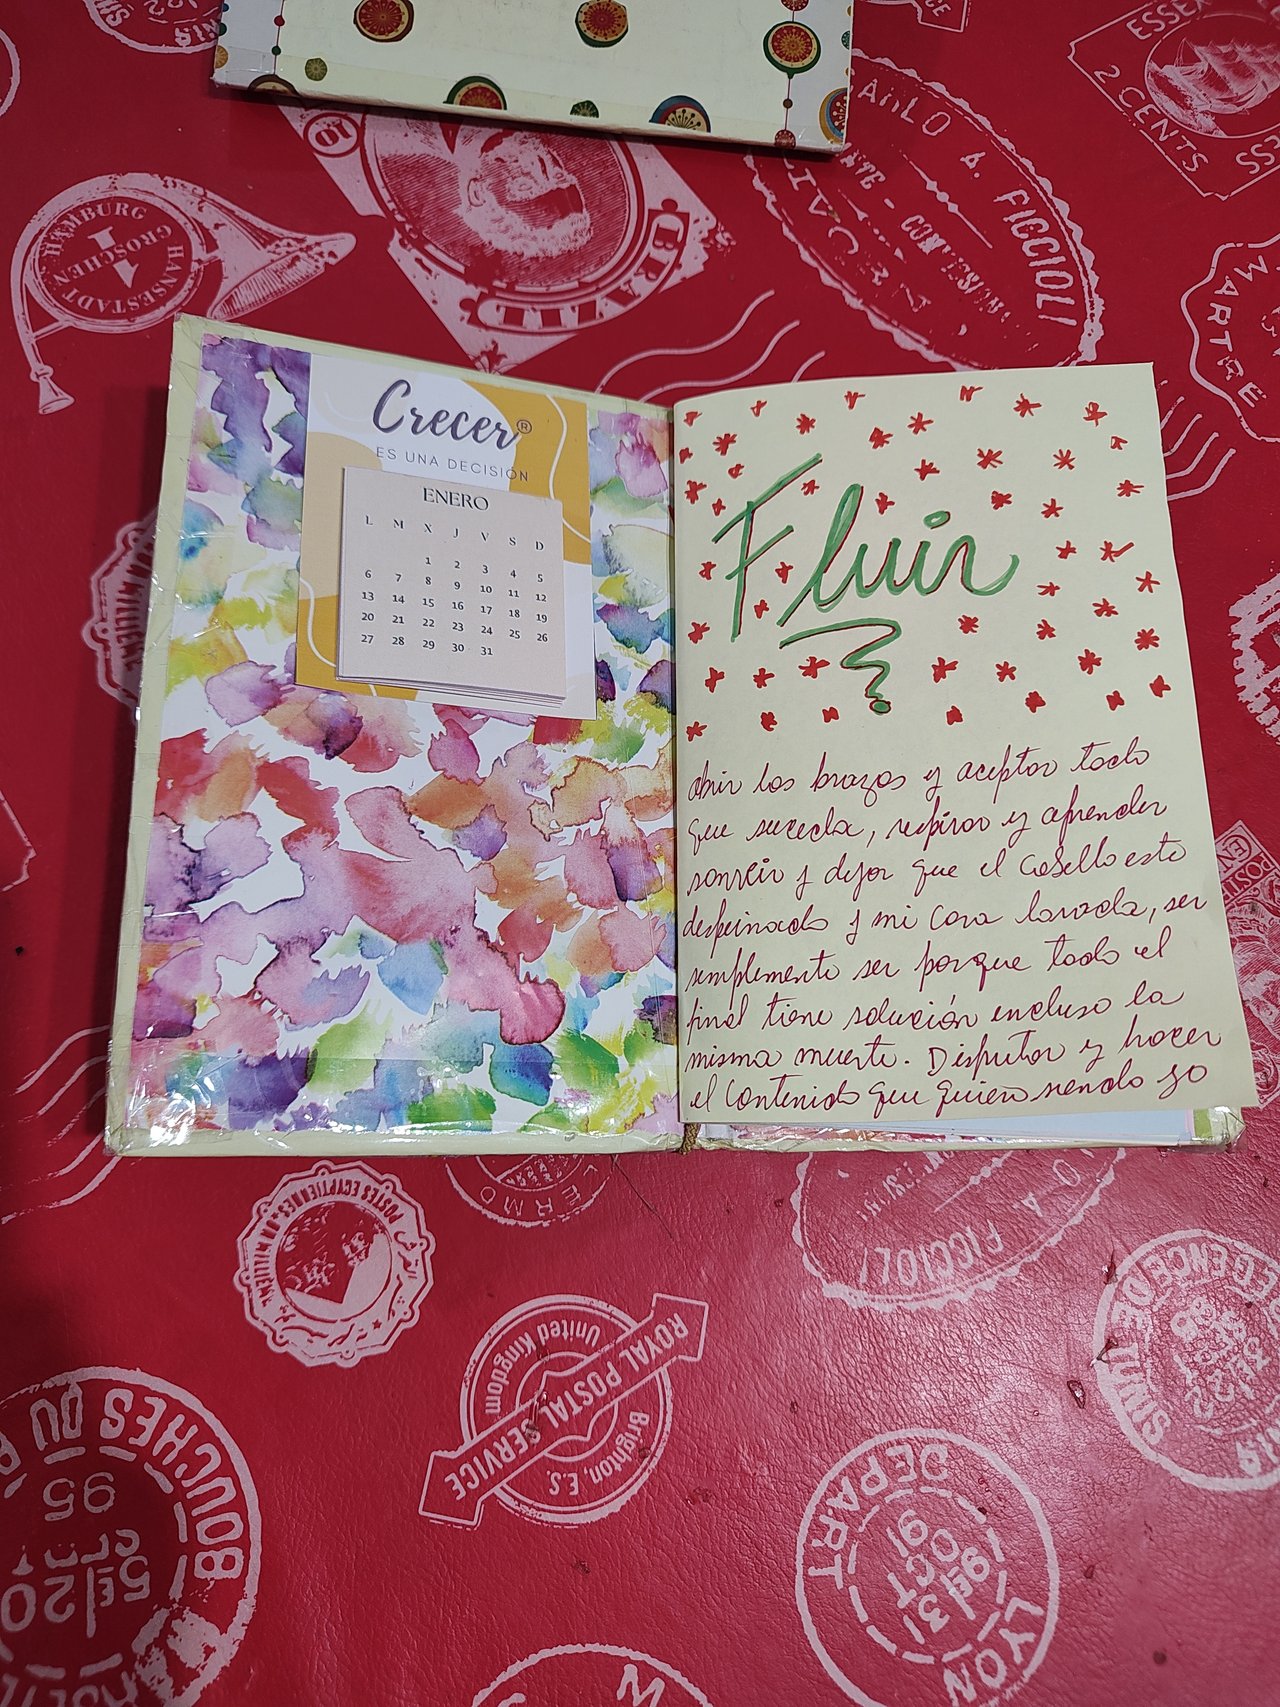 Crecer®
ES UNA DECISIÓN
ENERO
L M X J V S D
1 2 3 4 5
6 7 8 9 10 11 12
13 14 15 16 17 18 19
20 21 22 23 24 25 26
27 28 29 30 31
Fluir
abrir los brazos y aceptar todo
que suceda, respirar y aprender
sonreir y dejar que el cabello este
despeinado y mi cara lavada, ser
simplemente ser porque todo al
final tiene solución incluso la
misma muerte. Disfrutar y hacer
el contenido que quiero siendo yo
ESSE
2 CENTS
ESS
10
BRAZIL
HAMBURG
HANSESTADT
GROSCHEN
1
CARLO A. FICCIOLI
LIVOR
MARTRE
POSTES EGYPTIENNES
FICCIOLI
A.
ROYAL POSTAL SERVICE
United Kingdom
Brighton, E.S.
BOUCHES DU R
5E/20
95
DEPART
LYON
3E/31
OCT
09
REGENCE DE